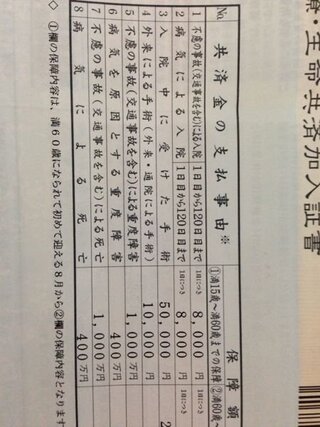 済・生命共済加入証書
保障額
No. 共済金の支払事由※ ①満15歳～満60歳までの保障 ②満60歳～
1 不慮の事故(交通事故を含む)による入院 1日目から120日目まで 1日につき 8,000円
2 病気による入院 1日目から120日目まで 1日につき 8,000円
3 入院中に受けた手術 50,000円 2
4 外来による手術(外来・通院による手術) 10,000円
5 不慮の事故(交通事故を含む)による重度障害 1,000万円
6 病気を原因とする重度障害 400万円
7 不慮の事故(交通事故を含む)による死亡 1,000万円
8 病気による死亡 400万円
◇ ①欄の保障内容は、満60歳になられて初めて迎える8月から②欄の保障内容となります